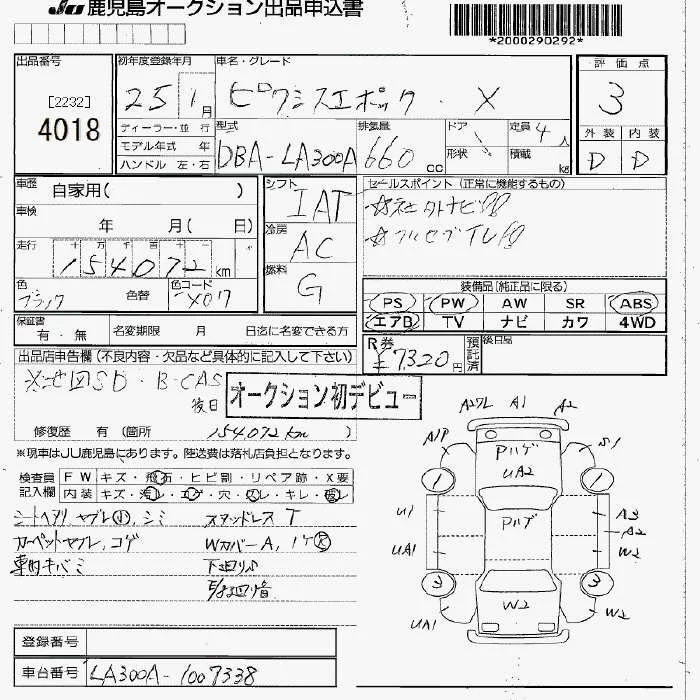 JU 鹿児島オークション出品申込書
*2000290292*
出品番号
[2232]
4018
初年度登録年月
25 1月
ディーラー・並 行
モデル年式 年
ハンドル 左・右
車名・グレード
ピクシスエポック . X
型式
DBA-LA300A
排気量
660 cc
ドア
形状
定員 4 人
積載 kg
評価点
3
外装 内装
D D
車歴
自家用( )
車検
年 月( 日)
走行
十 万 千 百 十 一
154072 km
色
ブラック 色替
色コード
X07
シフト
IAT
冷房
AC
燃料
G
セールスポイント (正常に機能するもの)
☆社外ナビ
☆フルセグTV
装備品 [純正品に限る]
PS PW AW SR ABS
エアB TV ナビ カワ 4WD
保証書
有・無
名変期限 月 日迄に名変できる方
R券
¥7320円
預託済
後日品
出品店申告欄 (不良内容・欠品など具体的に記入して下さい)
※地図SD・B-CAS
後日
オークション初デビュー
修復歴 有 (箇所 154072km )
※現車はJU鹿児島にあります。陸送費は落札店負担となります。
検査員
記入欄
FW キズ・飛石・ヒビ割・リペア跡・X要
内装 キズ・汚レ・コゲ・穴・スレ・キレ・破レ
シートヘタリ、ヤブレ小、シミ
カーペットヤブレ、コゲ
車内キバミ
スタッドレスT
WカバーA、ハゲ大
下廻りサビ
A2XL A1 A2
A1P S1
PハゲUA2
1 1
U1 Pハゲ A3
A2
UA1 W2
3 3
W2
UA1 W2
登録番号
車台番号 LA300A-1007338